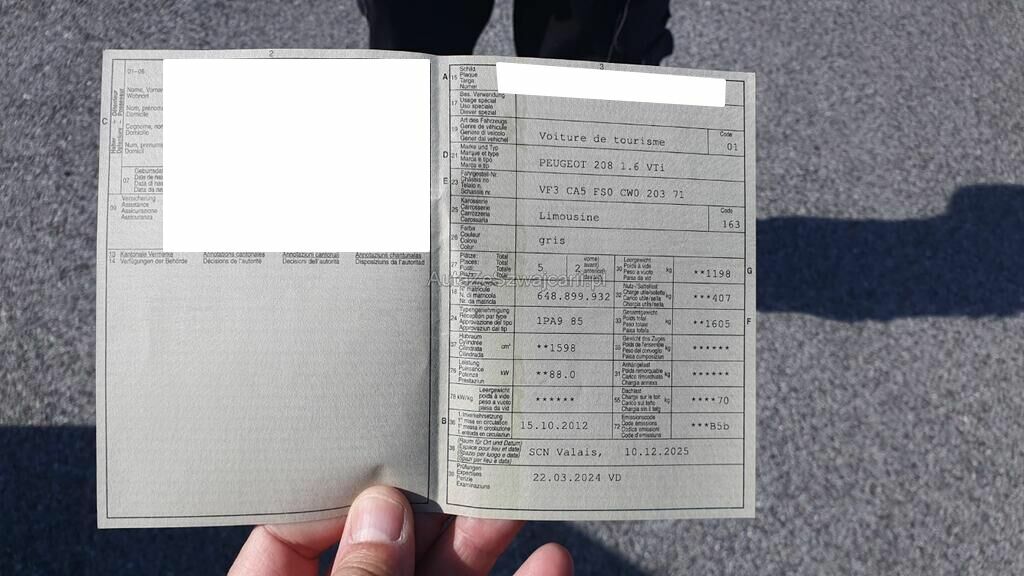 2
C
Halter - Détenteur
01-06
Name, Vorna
Wohnort
Nom, prénoms
Domicile
Cognome, nom
Domicilio
Num, prenum
Domicil
07
Geburtsda
Date de nais
Data di nas
Data da na
09
Versicherung
Assurance
Assicurazione
Assicuranza
13
14
Kantonale Vermerke
Verfügungen der Behörde
Annotations cantonales
Décisions de l'autorité
Annotazioni cantonali
Decisioni dell'autorità
Annotaziuns chantunalas
Disposiziuns da l'autoritad
3
A 15 Schild
Plaque
Targa
Numer
17 Bes. Verwendung
Usage spécial
Uso speciale
Diever spezial
19 Art des Fahrzeugs
Genre de véhicule
Genere di veicolo
Gener dal vehichel
Voiture de tourisme
Code
01
D 21 Marke und Typ
Marque et type
Marca e tipo
Marca e tip
PEUGEOT 208 1.6 VTi
E 23 Fahrgestell-Nr.
Châssis no
Telaio n.
Schassis nr.
VF3 CA5 FS0 CW0 203 71
25 Karosserie
Carrosserie
Carrozzeria
Carossaria
Limousine
Code
163
26 Farbe
Couleur
Colore
Colur
gris
Plätze: Total
Places: Total
Posti: Totale
Total
5
vorne
avant
anteriori
2
30 Leergewicht
Poids à vide
Peso a vuoto
Paisa da vid
kg
**1198
G
AutaZeSzwajcarii.pl
18
N° matricule
N. di matricola
Nr. da matricla
648.899.932
32 Nutz-/Sattellast
Charge utile/sellette
Carico utile/sella
Chargia utila/sella
kg
***407
24 Typengenehmigung
Réception par type
Approvazione del tipo
Approvaziun dal tip
1PA9 85
33 Gesamtgewicht
Poids total
Peso totale
Paisa totala
kg
**1605
F
37 Hubraum
Cylindrée
Cilindrata
Cilindrada
cm³
**1598
35 Gewicht des Zuges
Poids de l'ensemble
Peso del convoglio
Paisa cumposiziun
kg
******
76 Leistung
Puissance
Potenza
Prestaziun
kW
**88.0
31 Anhängelast
Poids remorquable
Carico rimorchiato
Chargia annexa
kg
******
78 kW/kg
Leergewicht
poids à vide
peso a vuoto
paisa da vid
******
55 Dachlast
Charge sur le toit
Carico sul tetto
Chargia sin il tetg
kg
****70
B 36 1. Inverkehrsetzung
1re mise en circulation
1a messa in circolazione
1. entrada en circulaziun
15.10.2012
72 Emissionscode
Code émissions
Codice emissioni
Code d'emissiuns
***B5b
38 (Raum für Ort und Datum)
(Espace pour lieu et date)
(Spazio per luogo e data)
(Spazi per lieu e data)
SCN Valais, 10.12.2025
39 Prüfungen
Expertises
Perizie
Examinaziuns
22.03.2024 VD